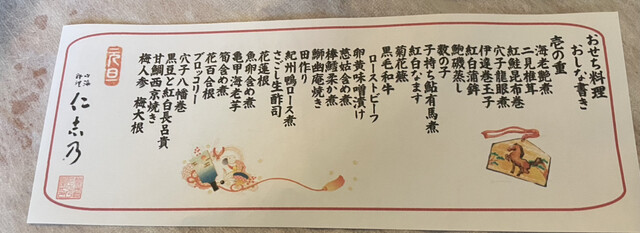 おせち料理
おしな書き
壱の重
海老艶煮
二見椎茸
紅鮭昆布巻
穴子龍眼煮
伊達巻玉子
紅白蒲鉾
鮑磯蒸し
数の子
子持ち鮎有馬煮
紅白なます
菊花蕪
黒毛和牛
ローストビーフ
卵黄味噌漬け
慈姑含め煮
棒鱈柔か煮
鰤幽庵焼き
田作り
紀州鴨ロース煮
さごし生酢司
花蓮根
魚卵含め煮
亀甲海老芋
筍含め煮
花百合根
ブロッコリー
穴子八幡巻
黒豆と紅白長呂貴
甘鯛西京焼き
梅人参 梅大根
元旦
心海
料理
仁志乃